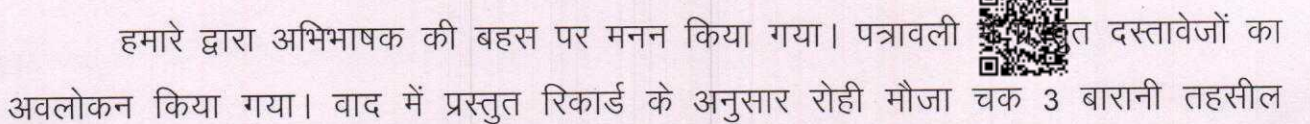 हमारे द्वारा अभिभाषक की बहस पर मनन किया गया। पत्रावली त दस्तावेजों का
अवलोकन किया गया। वाद में प्रस्तुत रिकार्ड के अनुसार रोही मौजा चक 3 बारानी तहसील